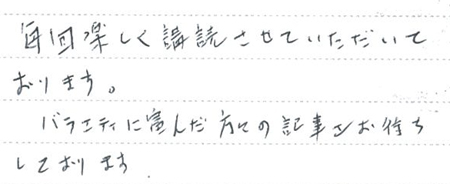 毎回楽しく講読させていただいて
おります。
バラエティに富んだ方々の記事をお待ち
しております